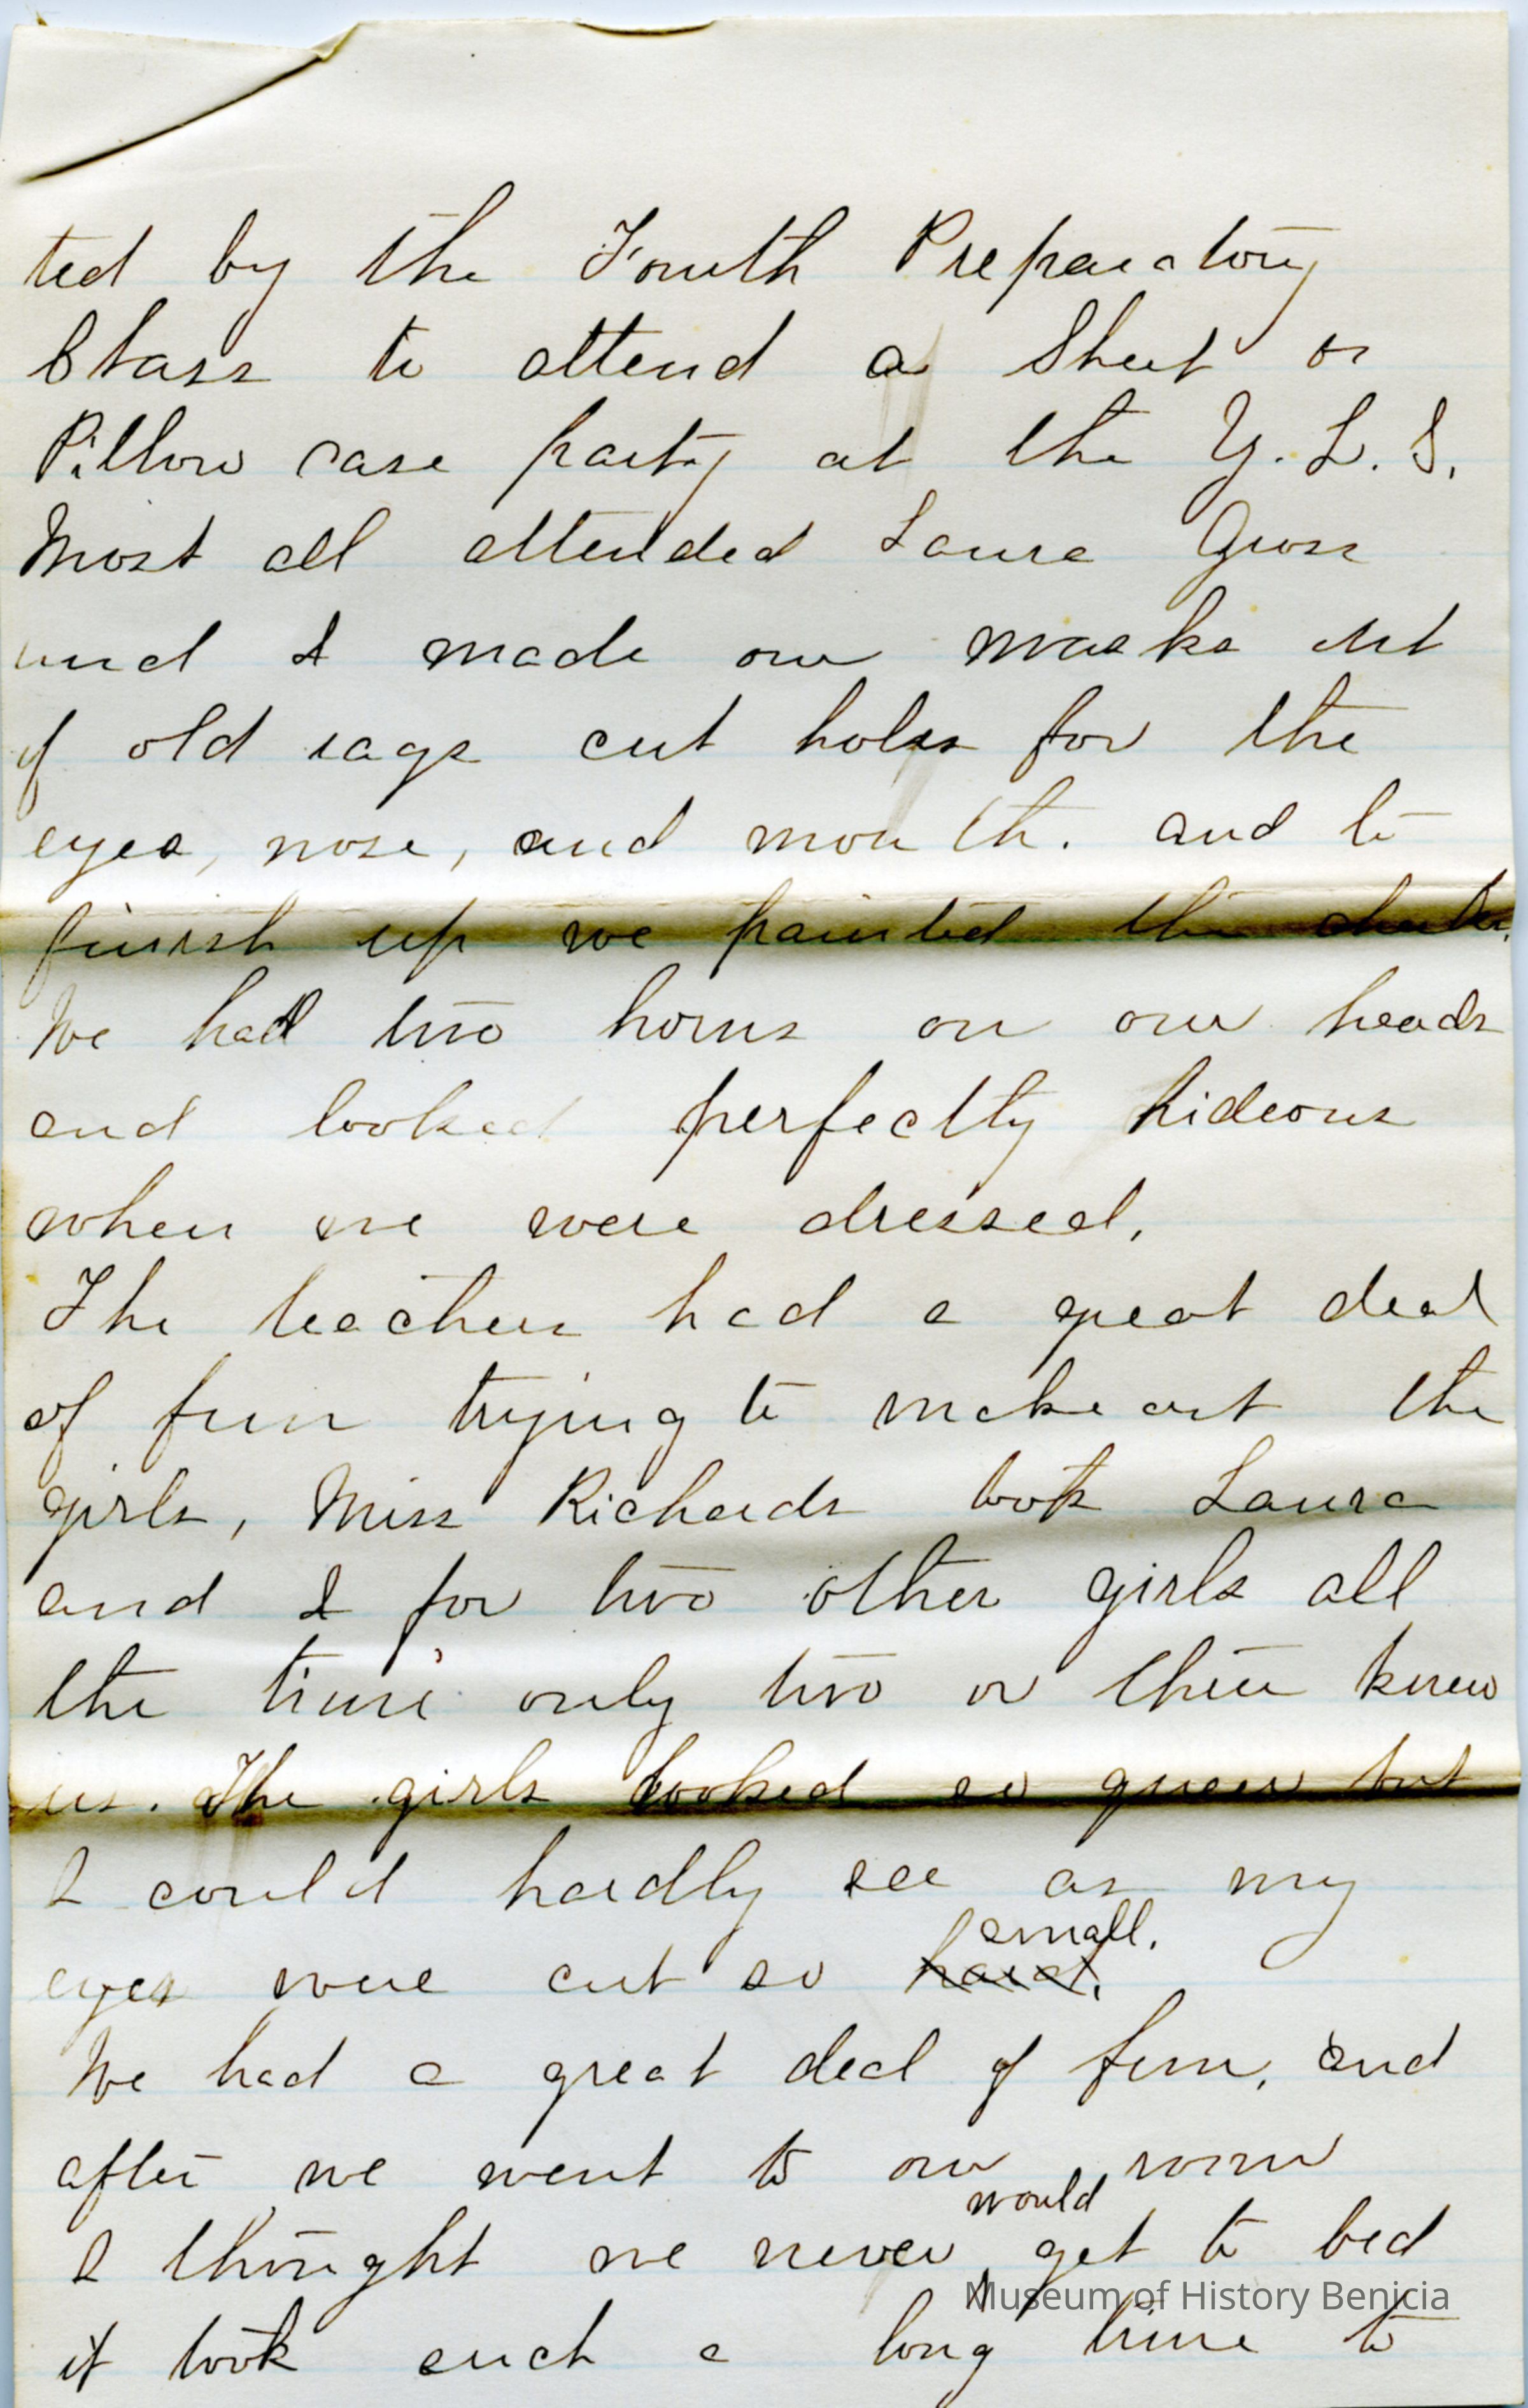 ted by the Fourth Preparatory
Class to attend a Sheet or
Pillow case party at the Y. L. S.
Most all attended Laura Gross
and I made our masks out
of old rags cut holes for the
eyes, nose, and mouth. and to
finish up we painted the cheeks.
We had two horns on our heads
and looked perfectly hideous
when we were dressed.
The teachers had a great deal
of fun trying to make out the
girls, Miss Richards took Laura
and I for two other girls all
the time only two or three knew
us. The girls looked so queer but
I could hardly see as my
small.
eyes were cut so hard.
We had a great deal of fun, and
after we went to our room
would
I thought we never get to bed
it took such a long time to
Museum of History Benicia